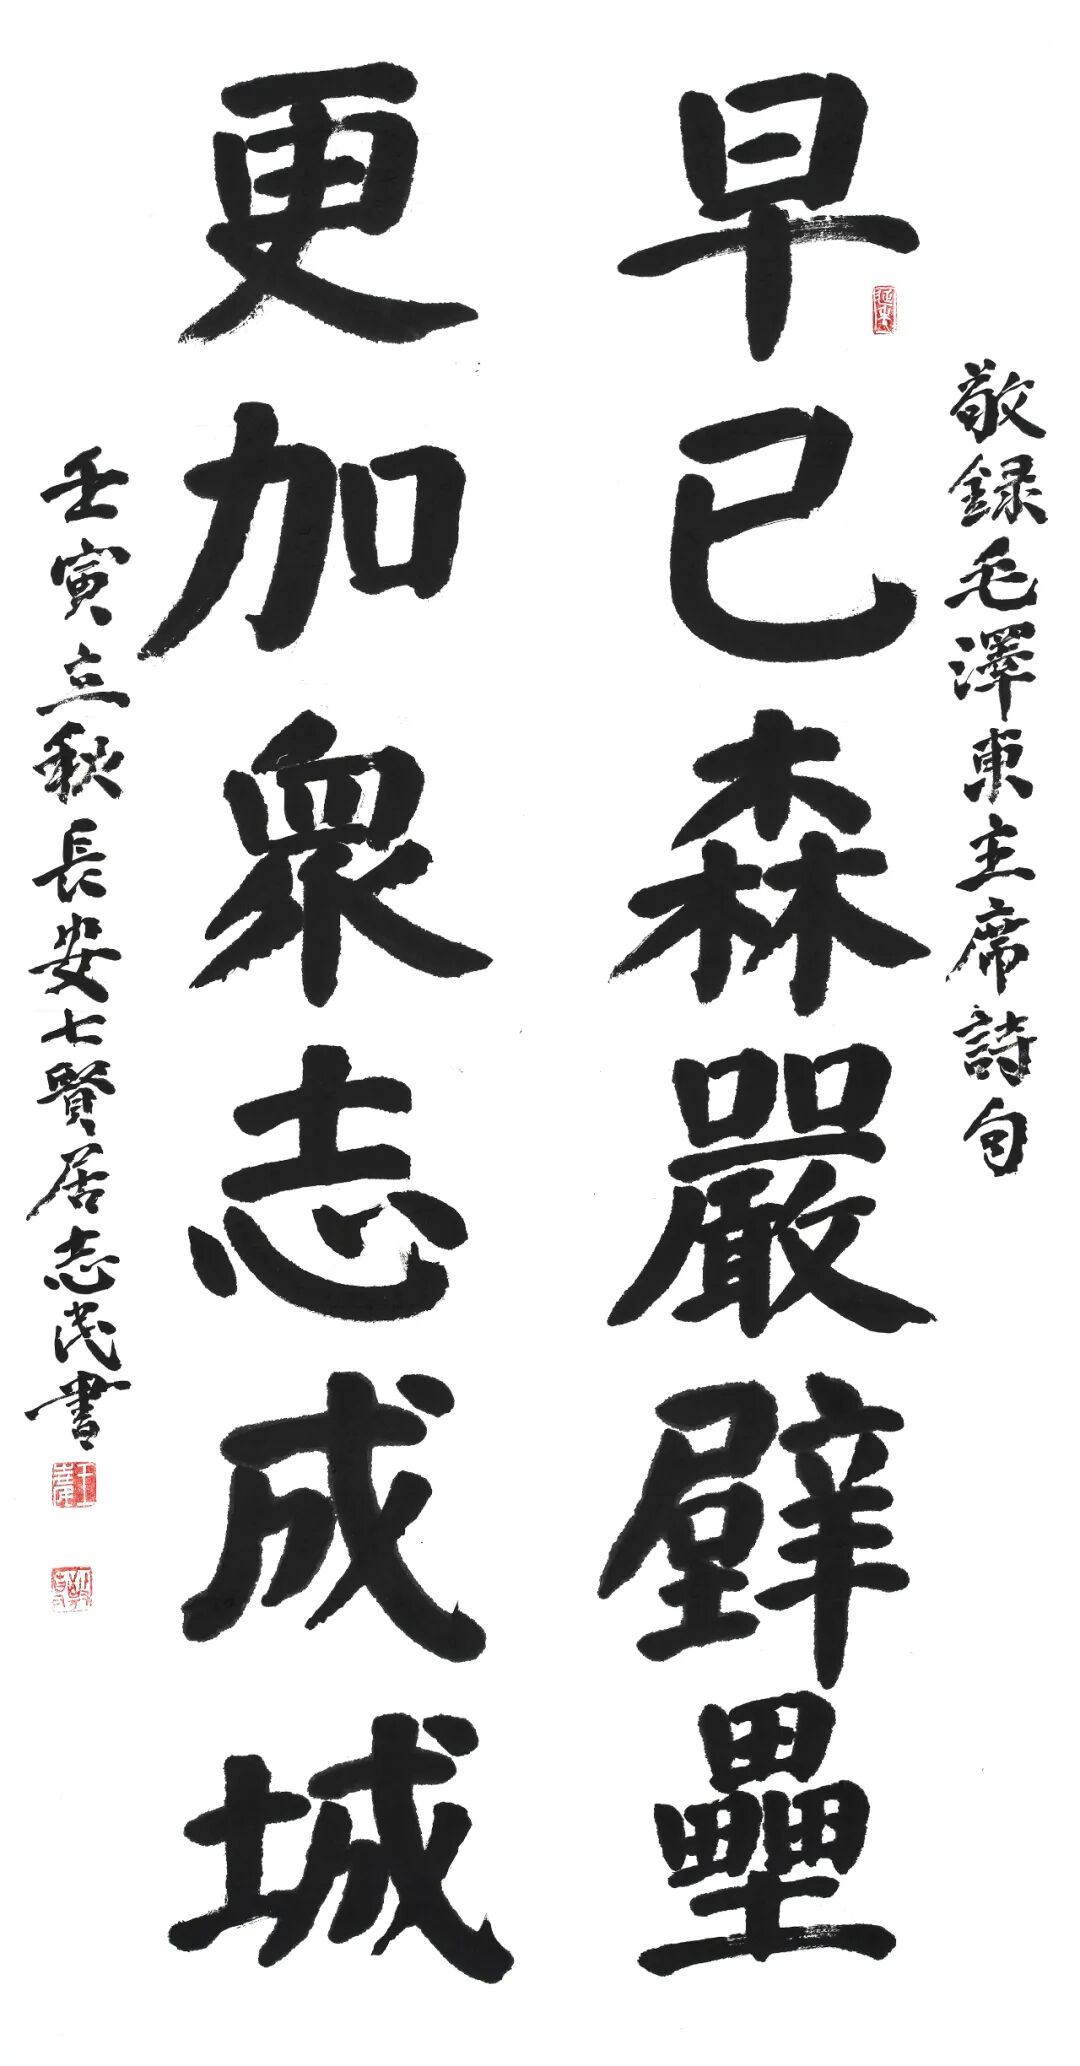 敬録毛澤東主席詩句
早已森嚴壁壘
更加衆志成城
壬寅立秋長安七賢居志茂書